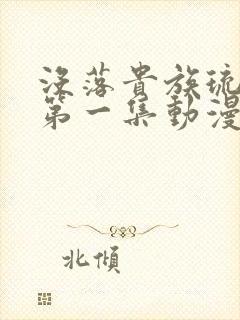 沒落貴族琉
第一集動漫
北傾